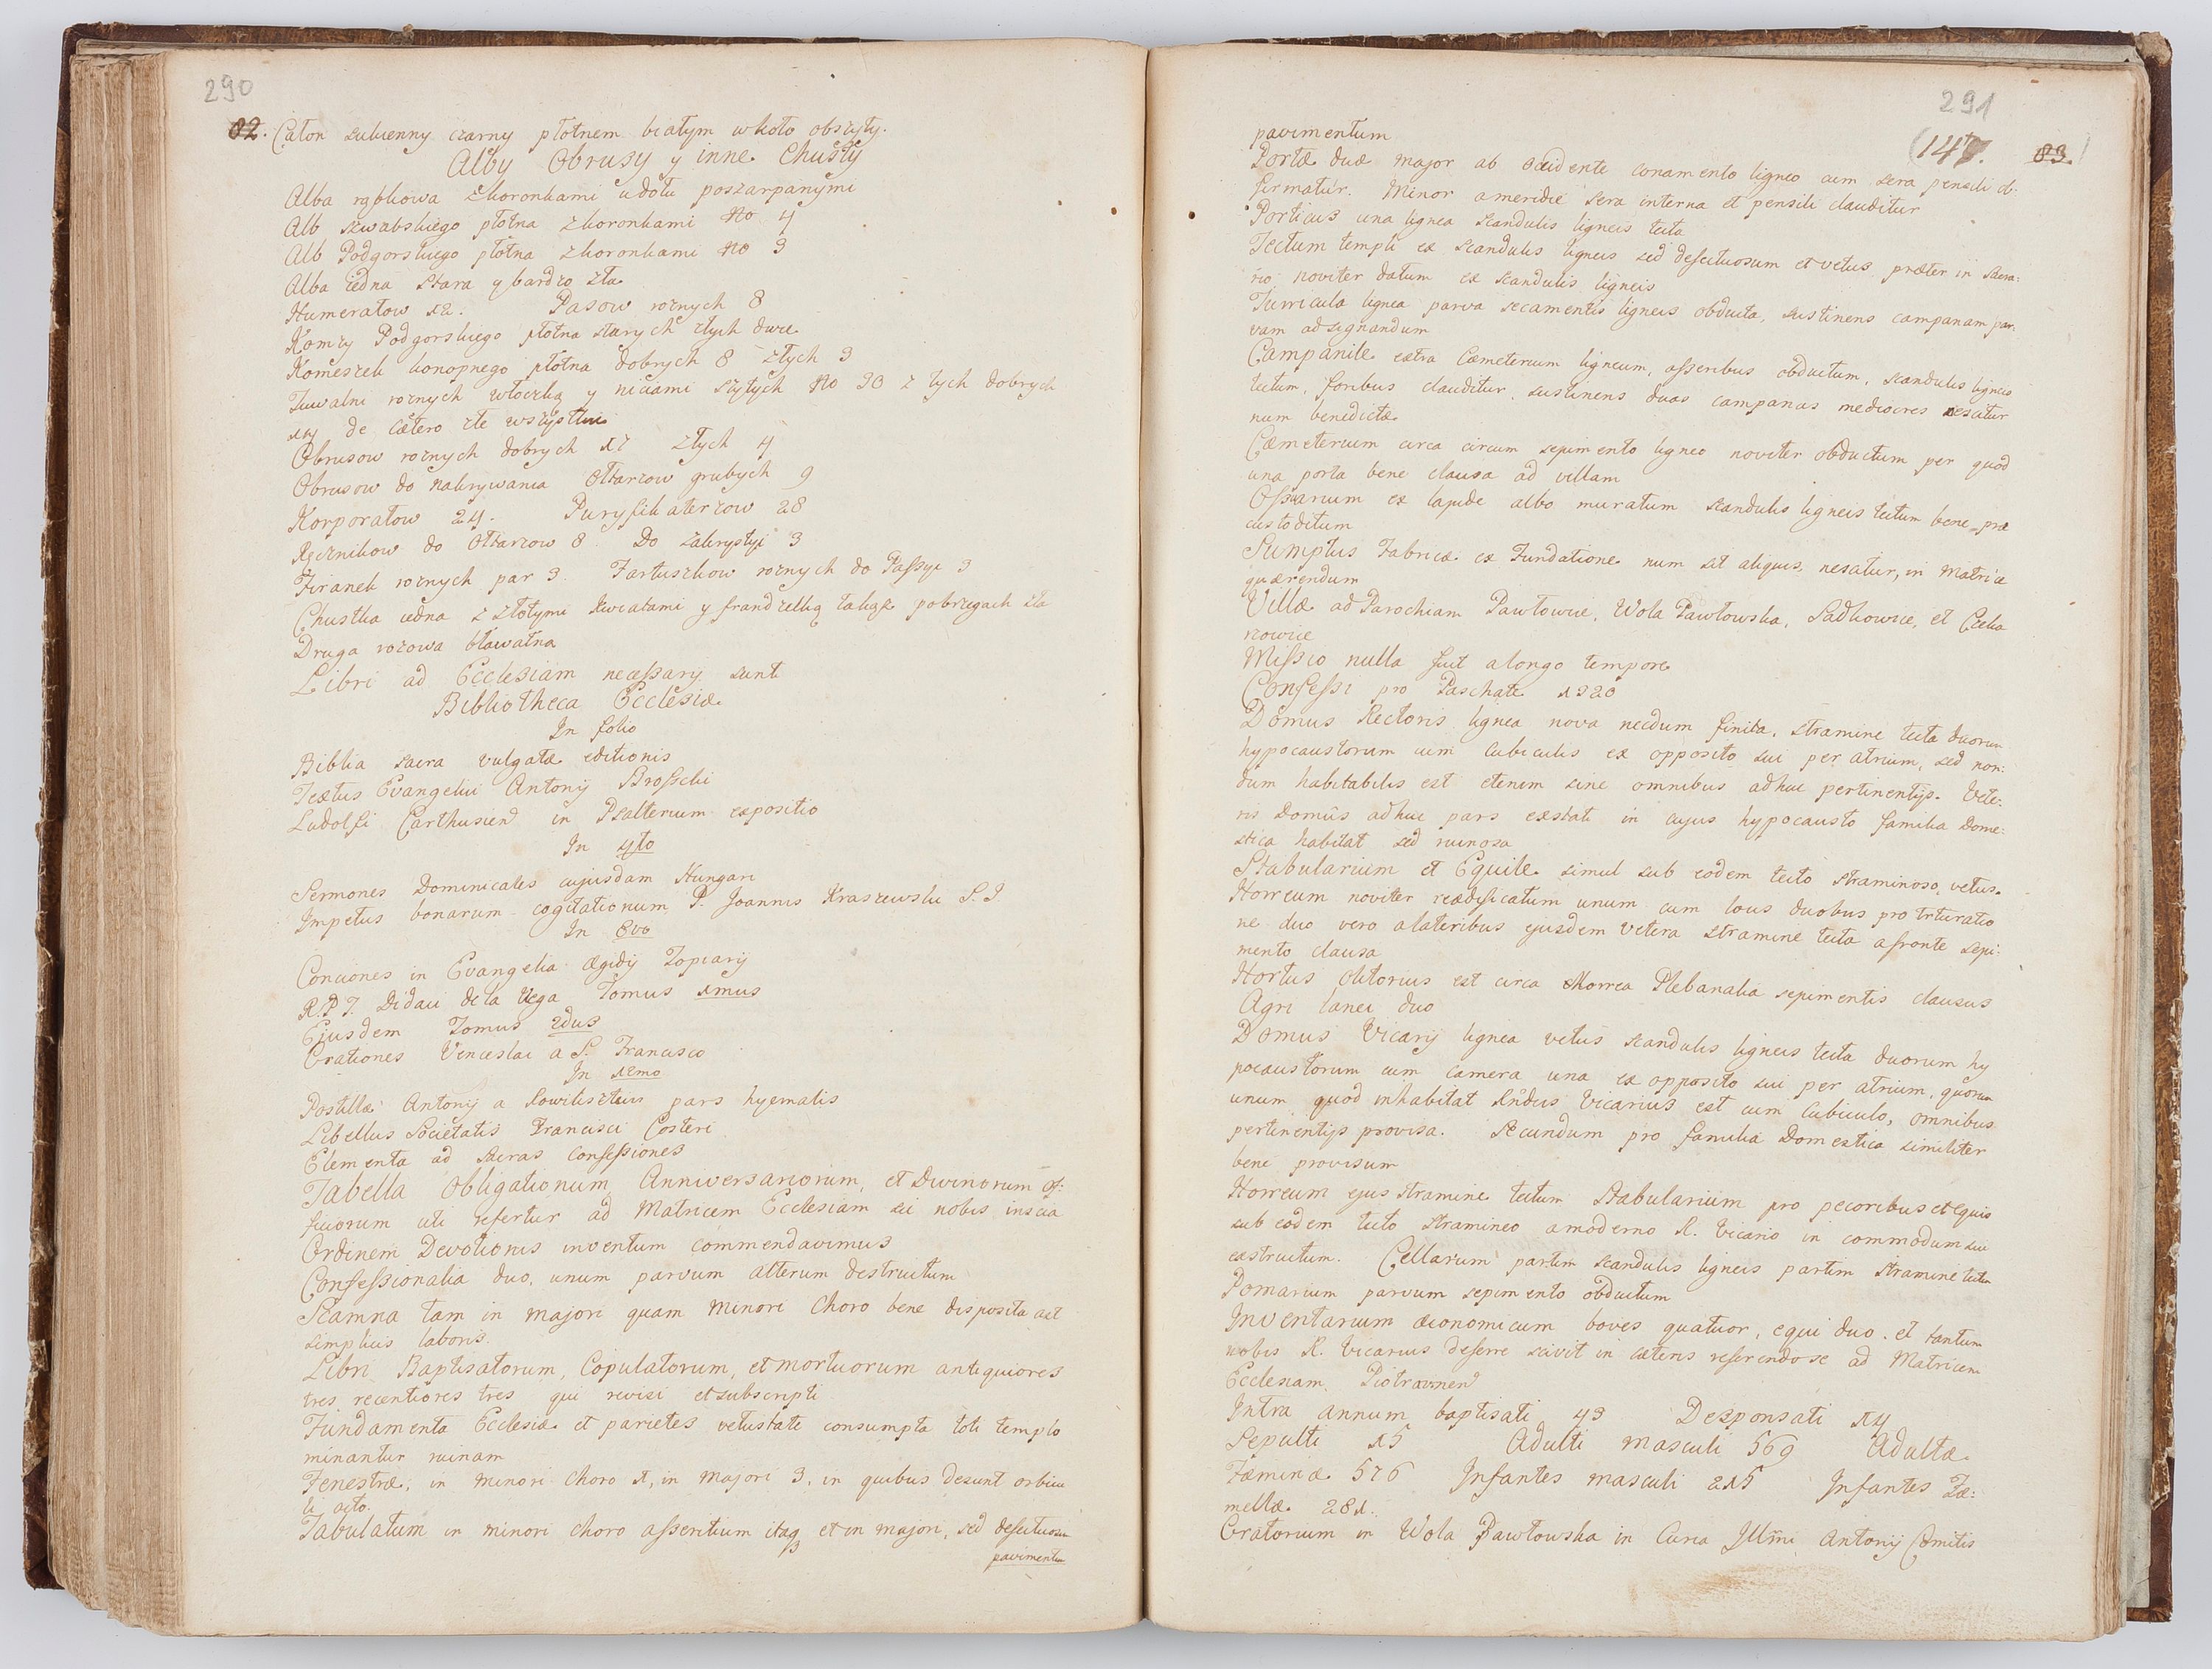 290
82. Całon sukienny czarny płotnem białym wkoło obszyty.
Alby Obrusy y inne Chusty
Alba rąbkowa zkoronkami udołu poszarpanymi
Alb szwabskiego płotna zkoronkami No 4
Alb Podgorskiego płotna zkoronkami No 3
Alba iedna stara y bardzo zła
Humerałow 12. Pasow roznych 8
Komzy Podgorskiego płotna starych złych dwie
Komeszek konopnego płotna dobrych 8 złych 3
Tuwalni roznych włoczką y niciami szytych No 30 z tych dobrych
14 de cætero złe wszystkie
Obrusow roznych dobrych 17 złych 4
Obrusow do nakrywania Ołtarzow grubych 9
Korporałow 24. Puryfikaterzow 28
Ręcznikow do Ołtarzow 8. Do zakrystyi 3
Firanek roznych par 3. Fartuszkow roznych do Passyi 3
Chustka iedna z złotymi kwiatami y frandzelką takąż pobrzegach zła
Druga rozowa bławatna
Libri ad Ecclesiam necessarij sunt
Bibliotheca Ecclesiæ
In folio
Biblia sacra vulgatæ editionis
Textus Evangelii Antonij Brosschi
Ludolfi Carthusien in Psalterium expositio
In 4to
Sermones Dominicales cujusdam Hungari
Impetus bonarum cogitationum P. Joannis Kraszewski S. J.
In 8vo
Conciones in Evangelia Ægidij Topiarij
R. P. F. Didaci de la Vega Tomus 1mus
Ejusdem Tomus 2dus
Orationes Venceslai a S. Francisco
In 12mo
Postillæ Antonij a pars hyemalis
Libellus Societatis Francisci Costeri
Elementa ad sacras Confessiones
Tabella Obligationum Anniversariorum, et Divinorum Of:
ficiorum uti refertur ad Matricem Ecclesiam sci nobis inscia
Ordinem Devotionis inventum commendavimus
Confessionalia duo, unum parvum alterum destructum
Scamna tam in majori quam minori Choro bene disposita ast
simplicis laboris.
Libri Baptisatorum, Copulatorum, et mortuorum antiquiores
tres, recentiores tres qui revisi et subscripti
Fundamenta Ecclesiæ et parietes vetustate consumpta toti templo
minantur ruinam
Fenestræ, in minori Choro 1, in majori 3, in quibus desunt orbicu
li octo.
Tabulatum in minori choro asseritium itaq3 et in majori, sed defectuosu
pavimentu
291
(147. 83.)
pavimentum
Portæ duæ major ab occidente conamento ligneo cum sera pensili ob
firmatur. Minor a meridie sera interna et pensili clauditur
Porticus una lignea scandulis ligneis tecta
Tectum templi ex scandulis ligneis sed defectuosum et vetus, præter in Sacra:
rio noviter datum ex scandulis ligneis
Turricula lignea parva secamentis ligneis obducta, sustinens campanam par
vam ad signandum
Campanile extra Cæmeterium ligneum, asseribus obductum, scandulis ligneis
tectum, foribus clauditur, sustinens duas campanas mediocres nescitur
num benedictæ
Cæmeterium circa circum sepimento ligneo noviter obductum per quod
una porta bene clausa ad villam
Ossarium ex lapide albo muratum scandulis ligneis tectum bene præ
custoditum
Sumptus Fabricæ ex Fundatione num sit aliquis, nescitur, in Matrice
quærendum
Villæ ad Parochiam Pawłowice, Wola Pawłowska, Sadkowice, et Ceka
rzowice
Missio nulla fuit a longo tempore
Confessi pro Paschate 1320
Domus Rectoris lignea nova necdum finita, stramine tecta duorum
hypocaustorum cum Cubiculis ex opposito sui per atrium, sed non:
dum habitabilis est etenim sine omnibus adhuc pertinentijs. Vete:
ris Domus adhuc pars exstati in cujus hypocausto familia Dome:
stica habitat sed ruinosa
Stabularium et Equile simul sub eodem tecto straminoso, vetus.
Horreum noviter reædificatum unum cum locis duobus pro trturatio
ne duo vero a lateribus ejusdem vetera stramine tecta a fronte sepi:
mento clausa
Hortus Olitorius est circa Horrea Plebanalia sepimentis clausus
Agri lanei duo
Domus Vicarij lignea vetus scandulis ligneis tecta duorum hy
pocaustorum cum camera una ex opposito sui per atrium, quorum
unum quod inhabitat Rndus Vicarius est cum Cubiculo, omnibus
pertinentijs provisa. Secundum pro familia Domestica similiter
bene provisum
Horreum ejus stramine tectum Stabularium pro pecoribus et equis
sub eodem tecto stramineo a moderno R. Vicario in commodum sui
exstructum. Cellarum partim scandulis ligneis partim stramine tectu
Pomarium parvum sepimento obductum
Inventarium œconomicum boves quatuor, equi duo. et tantum
nobis R. Vicarius deferre scivit in cæteris referendo se ad Matricem
Ecclesiam Piotravinen
Intra annum baptisati 43 Desponsati 14
Sepulti 15 Adulti masculi 569 Adultæ
Fæminæ 576 Infantes masculi 215 Infantes Fæ:
mellæ 281.
Oratorium in Wola Pawłowska in Curia Illmi Antonij Comitis